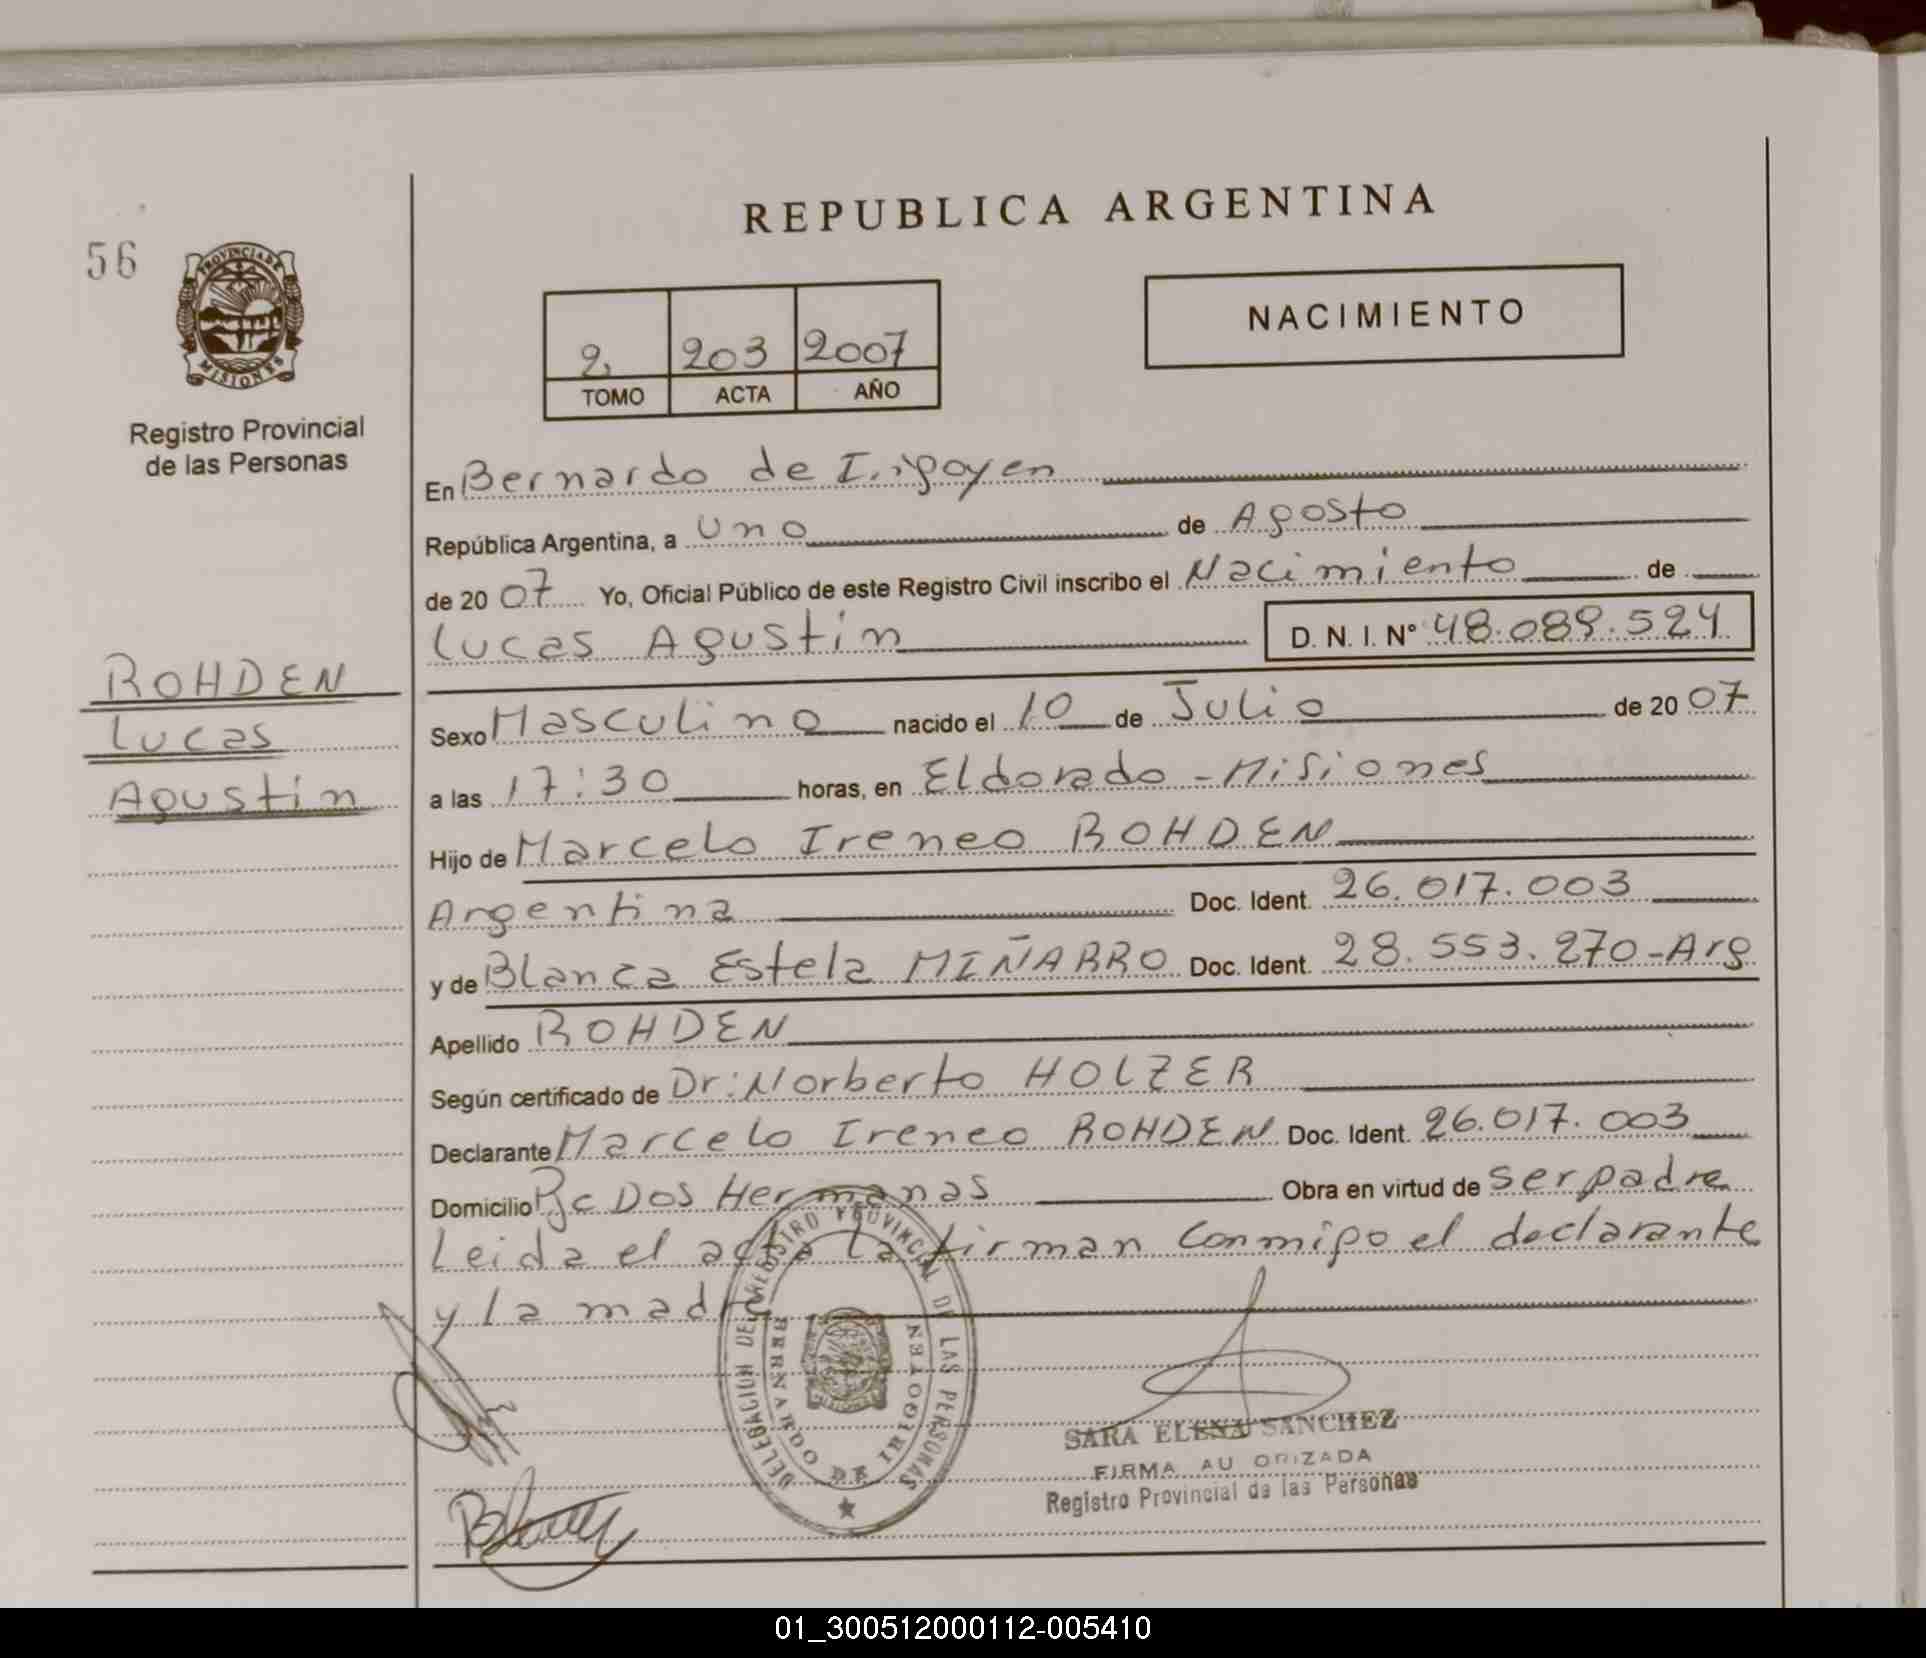 REPUBLICA ARGENTINA
56
PROVINCIA DE
MISIONES
Registro Provincial
de las Personas
NACIMIENTO
2 203 2007
TOMO ACTA AÑO
En Bernardo de Irigoyen
República Argentina, a uno de Agosto
de 20 07 Yo, Oficial Público de este Registro Civil inscribo el Nacimiento de
Lucas Agustin D. N. I. N° 48.089.524
ROHDEN
Lucas
Agustin
Sexo Masculino nacido el 10 de Julio de 20 07
a las 17:30 horas, en Eldorado - Misiones
Hijo de Marcelo Ireneo ROHDEN
Argentina Doc. Ident. 26.017.003
y de Blanca Estela MIÑARRO Doc. Ident. 28.553.270-Arg
Apellido ROHDEN
Según certificado de Dr: Norberto HOLZER
Declarante Marcelo Ireneo ROHDEN Doc. Ident. 26.017.003
Domicilio Pje Dos Hermanas Obra en virtud de ser padre
Leida el acta la firman conmigo el declarante
y la madre
DELEGACION DEL REGISTRO PROVINCIAL DE LAS PERSONAS
BERNARDO DE IRIGOYEN
SARA ELENA SANCHEZ
FIRMA AU ORIZADA
Registro Provincial de las Personas
01_300512000112-005410